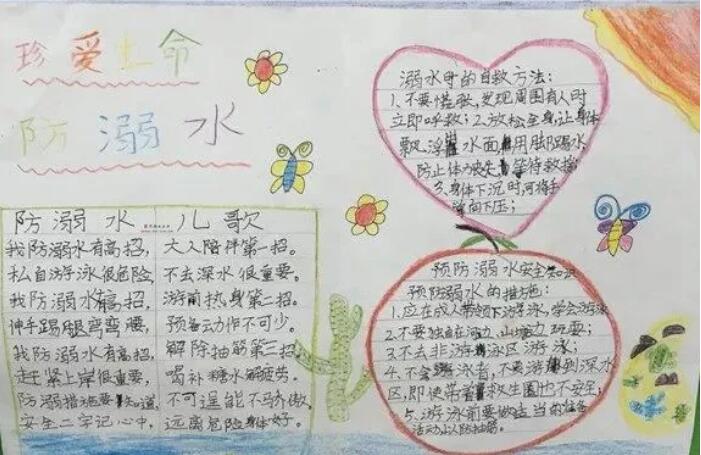 珍爱生命
防溺水
防溺水儿歌
我防溺水有高招，大人陪伴第一招。
私自游泳很危险，不去深水很重要。
我防溺水有高招，游前热身第二招。
伸手踢腿弯弯腰，预备动作不可少。
我防溺水有高招，解除抽筋第三招。
赶紧上岸很重要，喝补糖水解疲劳。
防溺措施要知道，不可逞能不骄傲。
安全二字记心中，远离危险身体好。
溺水时的自救方法：
1、不要慌张，发现周围有人时
立即呼救；2、放松全身，让身体
飘浮在水面，用脚踢水
防止体力丧失，等待救援
3、身体下沉时，可将手
掌向下压；
预防溺水安全知识
预防溺水的措施：
1、应在成人带领下游泳，学会游泳
2、不要独自在河边、山塘边玩耍；
3、不去非游泳区游泳；
4、不会游泳者，不要游到深水
区，即使带着救生圈也不安全；
5、游泳前要做适当的准备
活动以防抽筋。